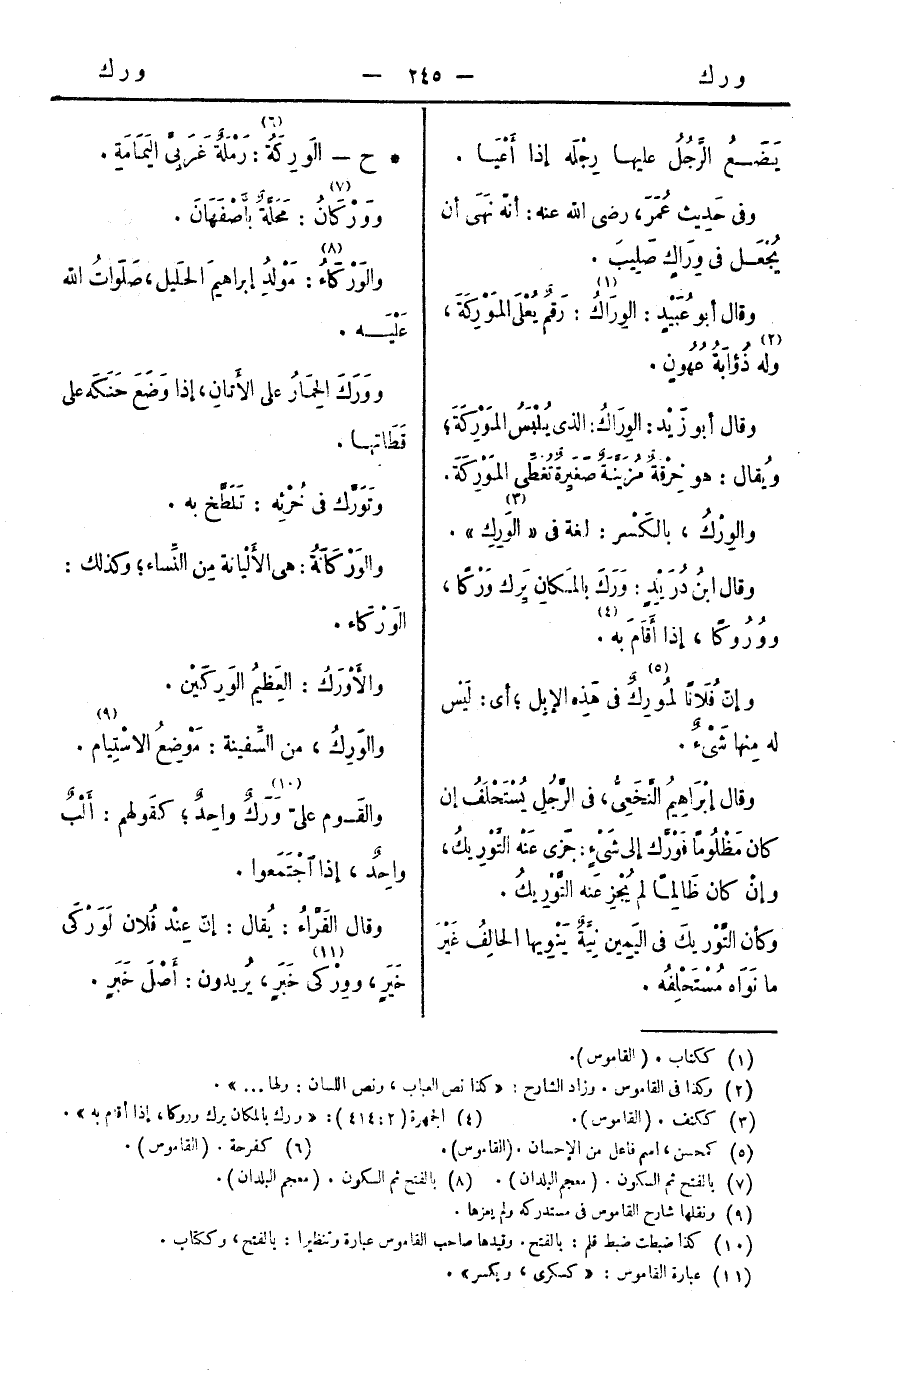 ورك — ٢٤٥ — ورك
يَضَــعُ الرَّجُلُ عليهـا رِجْلَه إذا أَعْيَـا .
وفى حَدِيث عُمَرَ، رضى الله عنه: أنّه نَهَى أن
يُجْعَـل فى وِرَاكٍ صَلِيبٌ .
وقال أبو عُبَيْدٍ : الوِرَاكُ (١) : رَقْمٌ يُعْلَى المَوْرِكَةَ ،
وله ذُؤَابَةُ عُهُونٍ (٢) .
وقال أبو زَيْد : الوِرَاكُ: الذى يُلْبَسُ المَوْرِكَةَ؛
ويُقال : هو خِرْقَةٌ مُزَيَّنَةٌ صَغِيرَةٌ تُغَطِّى المَوْرِكَةَ.
والوِرْكُ ، بالكَسْر : لغة فى « الوَرِكِ (٣) » .
وقال ابنُ دُرَيْدٍ : وَرَكَ بالمَـكانِ يَرِك وَرْكًا ،
ووُرُوكًا ، إذا أَقَامَ به (٤) .
وإنّ فُلَانًا لَمُورِكٌ (٥) فى هَذِه الإبِل ؛ أى: لَيْس
له مِنها شَىْءٌ .
وقال إِبْرَاهِيمُ النَّخَعِىُّ، فى الرَّجُلِ يُسْتَحْلَفُ إن
كان مَظْلُومًا فَوَرَّك إلى شَىْءٍ: جَزَى عَنْه التَّوْرِيكُ،
وإنْ كان ظَالِمًـا لم يُجْزِ عَنه التَّوْرِيكُ .
وكأن التَّوْرِيكَ فى اليَمِين نِيَّةٌ يَنْوِيها الحَالِفُ غَيْرَ
ما نَوَاه مُسْتَحْلِفُه .
• ح — الوَرِكَةُ (٦) : رَمْلَةٌ غَرَبِىَّ اليَمَامَةِ .
ووَرْكَانُ (٧) : مَحَلَّةٌ بأَصْفَهَانَ .
والوَرْكَاءُ (٨) : مَوْلِدُ إبراهِيمَ الخَليل، صَلَوَاتُ الله
عَلَيْــه .
ووَرَكَ الحِمَارُ على الأَتانِ، إذا وَضَعَ حَنَكَه على
قَطَاتِهـا .
وتَوَرَّك فى خُرْئِه : تَلَطَّخ به .
والوَرْكَانَةُ : هى الأَلْيانَة مِن النِّساء؛ وكذلك :
الوَرْكَاء .
والأَوْرَكُ : العَظِيمُ الوَرِكَيْن .
والوَرِكُ ، من السَّفِينة : مَوْضِعُ الاسْتِيام (٩) .
والقَـوم علىّ وَرْكٌ (١٠) واحِدٌ؛ كقَولهم : أَلْبٌ
واحِدٌ ، إذا اجْتَمَعوا .
وقال الفَرَّاءُ : يُقال : إنّ عِنْد فُلان لَوَرْكَى
خَبَرٍ، ووِرْكَى (١١) خَبَرٍ، يُريدون : أَصْلَ خَبَرٍ .
(١) ككتاب . (القاموس).
(٢) وكذا فى القاموس . وزاد الشارح : «كذا نص العباب ، ونص اللسان : ولها ...» .
(٣) ككتف . (القاموس). (٤) الجمهرة (٢ : ٤١٤): « ورك بالمكان يرك وروكا، إذا أقام به » .
(٥) كمحسن، اسم فاعل من الإحسان .(القاموس). (٦) كفرحة . (القاموس) .
(٧) بالفتح ثم السكون . (معجم البلدان) . (٨) بالفتح ثم السكون . (معجم البلدان).
(٩) ونقلها شارح القاموس فى مستدركه ولم يعزها .
(١٠) كذا ضبطت ضبط قلم : بالفتح. وقيدها صاحب القاموس عبارة وتنظيرا : بالفتح، وككتاب .
(١١) عبارة القاموس : «كسكرى ، ويكسر» .